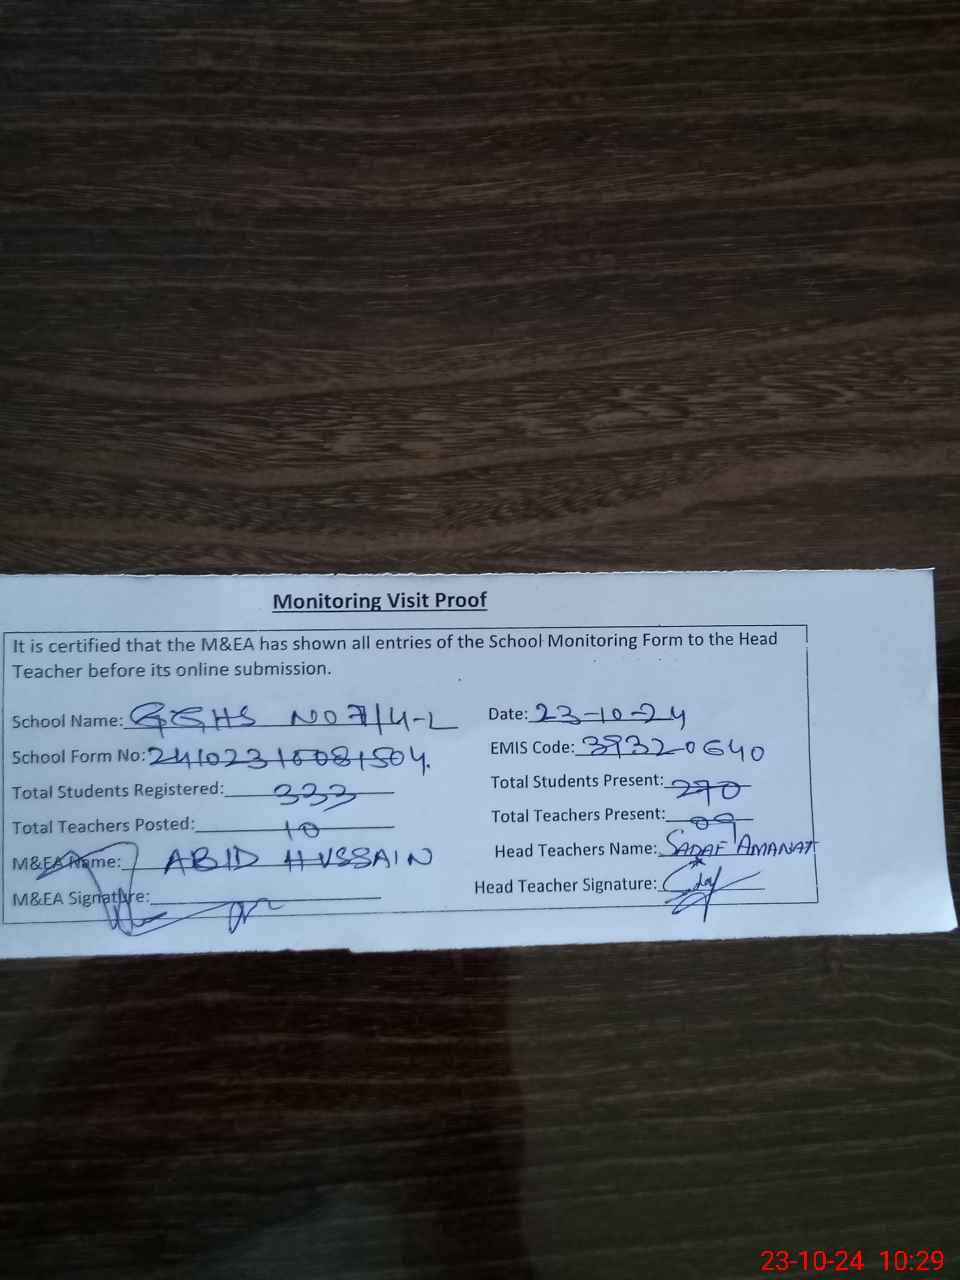 Monitoring Visit Proof
It is certified that the M&EA has shown all entries of the School Monitoring Form to the Head
Teacher before its online submission.
School Name: GGHS NO 7/4-L Date: 23-10-24
School Form No: EMIS Code: 39320640
Total Students Registered: 333 Total Students Present: 270
Total Teachers Posted: 10 Total Teachers Present: 09
M&EA Name: ABID HUSSAIN Head Teachers Name: SADAF AMANAT
M&EA Signature: Head Teacher Signature:
23-10-24 10:29